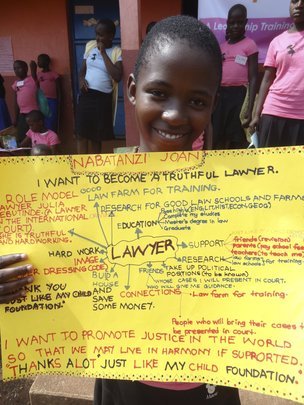 A Leadership Training
NABATANZI JOAN
I WANT TO BECOME A TRUTHFUL LAWYER.
ROLE MODEL
LAWYER JULIA
SEBUTINDE (A LAWYER
OF THE INTERNATIONAL
COURT)
IS TRUTHFUL
AND HARDWORKING.
GOOD
LAW FARM FOR TRAINING.
RESEARCH FOR GOOD LAW SCHOOLS AND FARMS
EDUCATION
Complete my studies
Masters degree in law
Graduate
LAWYER
SUPPORT
friends (revisions)
parents (my school fees)
teachers (to teach me)
law farms for training
schools
RESEARCH
HARD WORK
IMAGE
DRESSING CODE)
FRIENDS
TAKE UP POLITICAL
POSITIONS
(to be known)
BUILD A
HOUSE
AND
SAVE
SOME MONEY.
CONNECTIONS
whose cases I will present in court.
who give me guidance.
Law farm for training.
THANK YOU
JUST LIKE MY CHILD
FOUNDATION."
People who will bring their cases to
be presented in court.
I WANT TO PROMOTE JUSTICE IN THE WORLD
SO THAT WE MAY LIVE IN HARMONY IF SUPPORTED.
"THANKS ALOT JUST LIKE MY CHILD FOUNDATION.